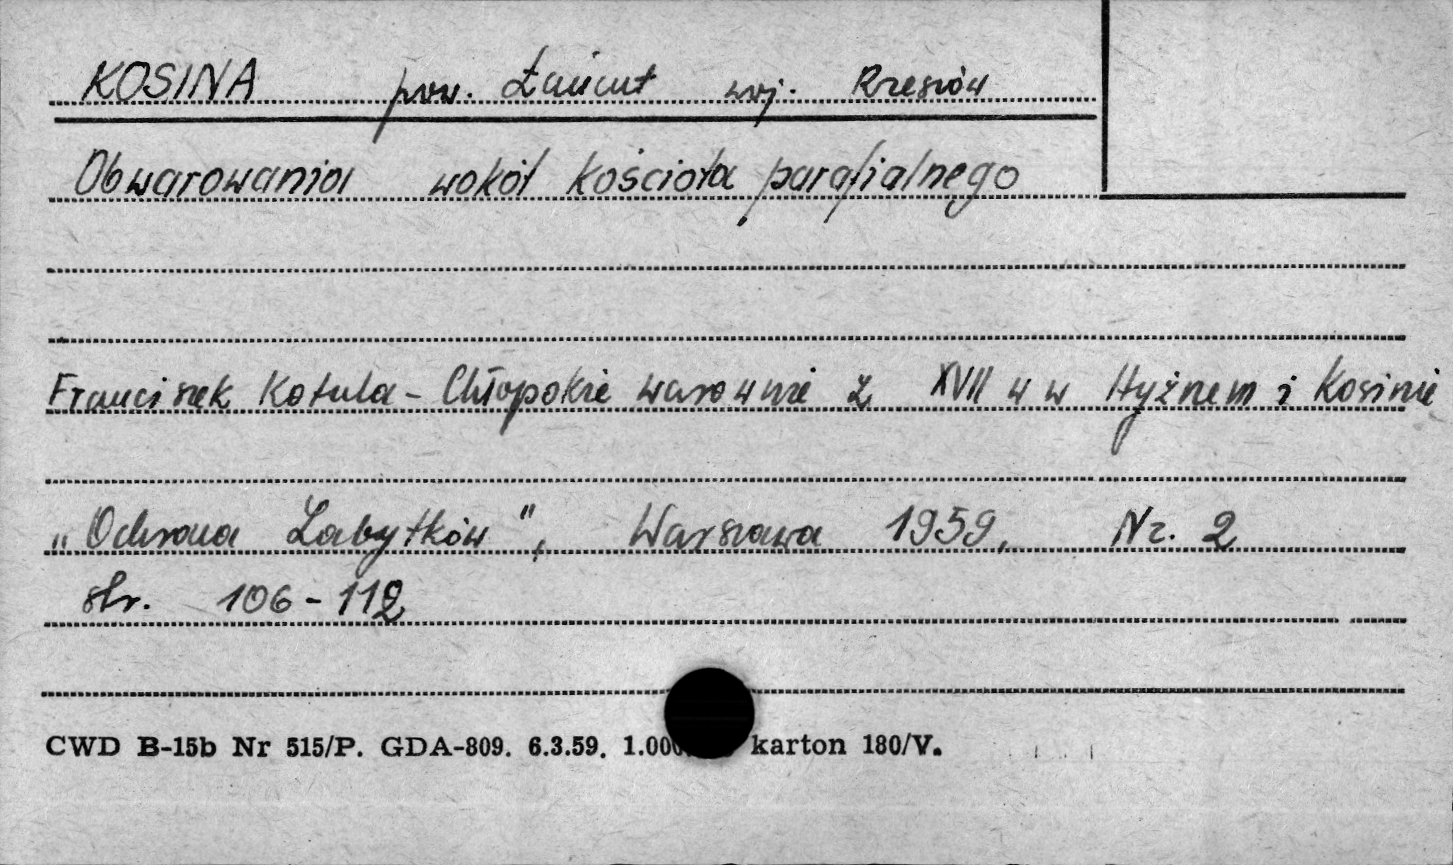 KOSINA pow. Łańcut woj. Rzeszów
Obwarowania wokół kościoła parafialnego
Franciszek Kotula - Chłopskie warownie z XVII w w Hyżnem i Kosinie
„Ochrona Zabytków", Warszawa 1959, Nr. 2
str. 106-112
CWD B-15b Nr 515/P. GDA-809. 6.3.59. karton 180/V.